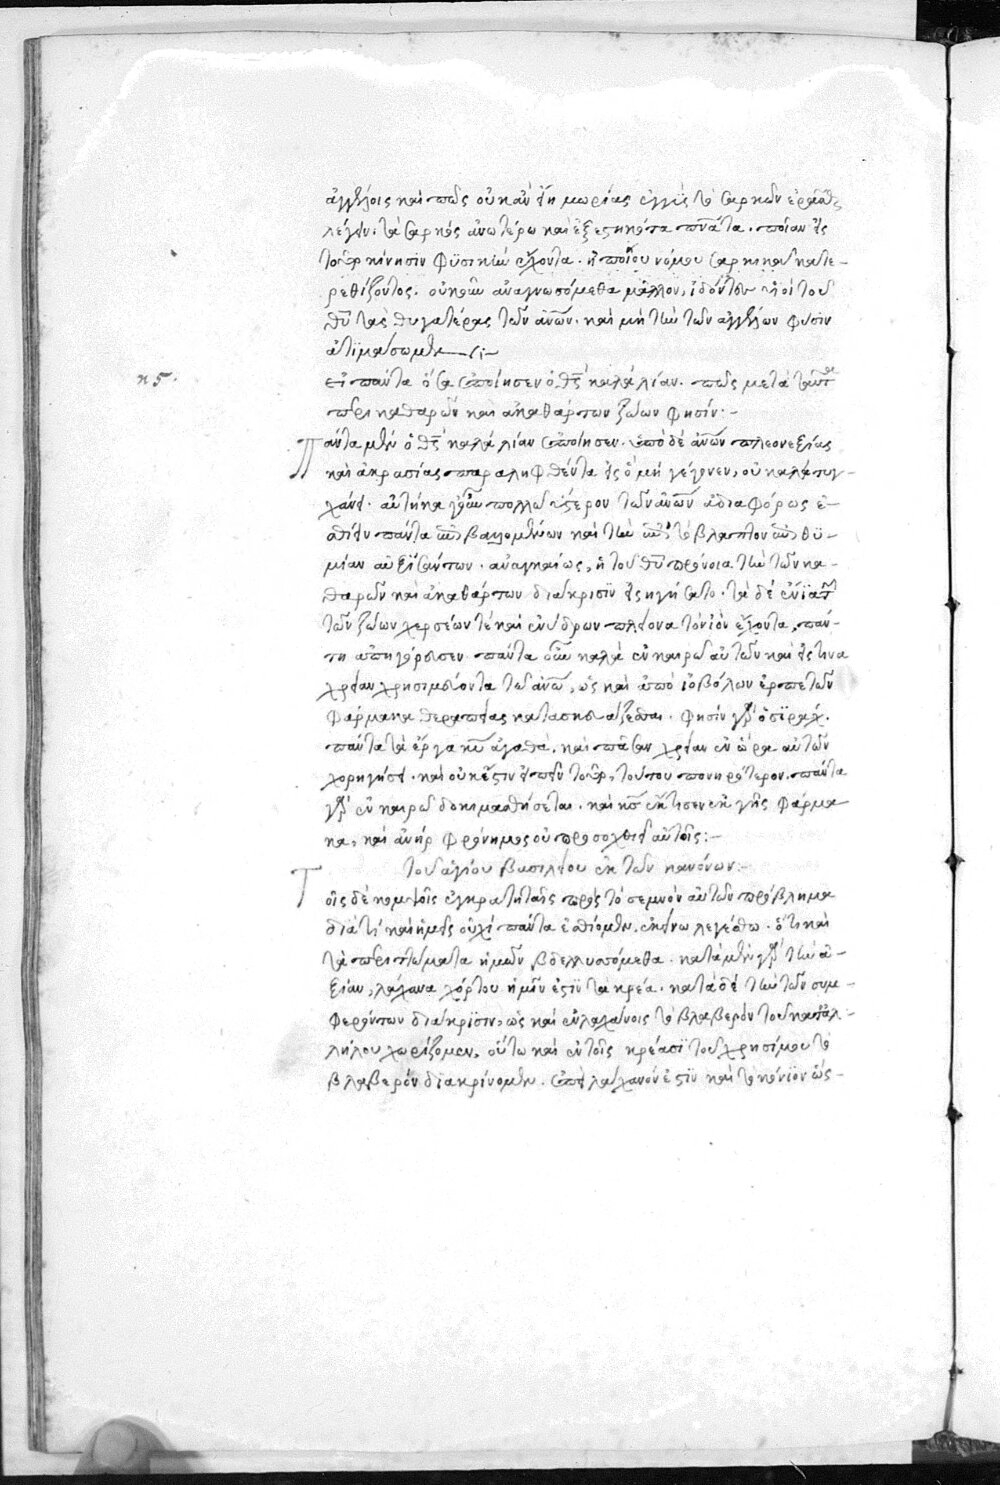 ἀγγέλοις καὶ πῶς οὐκ ἂν εἴη μωρίας ἐγγὺς τὸ σαρκῶν ἐρᾶν
λέγειν· τὰ σαρκὸς ἀνωτέρω καὶ ἐξεστηκότα πνάτα· ποίαν εἰς
τοῦτο κίνησιν φυσικὴν ἔχοντα· ἢ ποίου νόμου σαρκικοῦ κατε-
ρεθίζοντος· οὐκοῦν ἀναγνωσόμεθα μᾶλλον, ἰδόντες οἱ υἱοὶ τοῦ
θῦ τὰς θυγατέρας τῶν ἀνῶν· καὶ μὴ τὴν τῶν ἀγγέλων φύσιν
ἀτιμάσωμεν
κϛ·
εἰ πάντα ὅσα ἐποίησεν ὁ θς καλὰ λίαν· πῶς μετὰ ταῦτα
περὶ καθαρῶν καὶ ἀκαθάρτων ζώων φησίν:-
Πάντα μὲν ὁ θς καλὰ λίαν ἐποίησεν· ὑπὸ δὲ ἀνῶν πλεονεξίας
καὶ ἀκρασίας παραληφθέντα εἰς ὃ μὴ γέγονεν, οὐ καλὰ τυγ-
χάνει· αὐτίκα γοῦν πολλῶ ὕστερον τῶν ἀνῶν ἀδιαφόρως ἐ-
σθίειν πάντα βουλομένων καὶ τὴν ἐπὶ τὸ βλάπτον ἐπιθυ-
μίαν αὐξησάντων· ἀναγκαίως, ἡ τοῦ θῦ πρόνοια τὴν τῶν κα-
θαρῶν καὶ ἀκαθάρτων διάκρισιν εἰσηγήσατο· τὰ δὲ
τῶν ζώων χερσέων τὲ καὶ ἐνύδρων πλείονα τὸν ἰὸν ἔχοντα, πάν-
τη ἀπηγόρευσεν πάντα οὖν καλὰ ἐν καιρῶ αὐτῶν καὶ εἴς τινα
χρείαν χρησιμεύοντα τῶ ἀνω, ὡς καὶ ἀπὸ ἰοβόλων ἑρπετῶν
φάρμακα θεραπείας κατασκευάζεσθαι· φησὶν γὰρ ὁ σιράχ·
πάντα τὰ ἔργα κυ ἀγαθά, καὶ πᾶσαν χρείαν ἐν ὥρα αὐτῶν
χορηγήσει· καὶ οὐκ ἔστιν εἰπεῖν τοῦτο, τούτου πονηρότερον· πάντα
γὰρ ἐν καιρῶ δοκιμασθήσεται· καὶ κς ἔκτισεν ἐκ γῆς φάρμα-
κα, καὶ ἀνὴρ φρόνημος οὐ προσοχθιεῖ αὐτοῖς:-
τοῦ ἁγίου βασιλείου ἐκ τῶν κανόνων:-
Τοῖς δὲ κομψοῖς ἐγκρατηταῖς πρὸς τὸ σεμνὸν αὐτῶν πρόβλημα
διατί καὶ ἡμεῖς οὐχὶ πάντα ἐσθίομεν, ἐκεῖνο λεγέσθω· ὅτι καὶ
τὰ περιττώματα ἡμῶν βδελυσσόμεθα· κατὰ μὲν γὰρ τὴν ἀ-
ξίαν, λάχανα χόρτου ἡμῖν ἐστὶν τὰ κρέα· κατὰ δὲ τὴν τῶν συμ-
φερόντων διάκρισιν, ὡς καὶ ἐν λαχάνοις τὸ βλαβερὸν τοῦ καταλ-
λήλου χωρίζομεν, οὕτω καὶ ἐν τοῖς κρέασι τοῦ χρησίμου τὸ
βλαβερὸν διακρίνομεν· ἐπεὶ λάχανόν ἐστιν καὶ τὸ κόνιον ὡς-